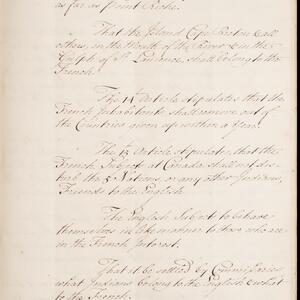 as far as Point Riche.
That the Island Cape Breton & all
others in the Mouth of the River & in the
Gulph of St. Lawrence shall belong to the
French.
The 14 Article stipulates that the
French Inhabitants shall remove out of
the Countries given up within a Year.
The 15 Article stipulates, that the
French Subjects at Canada shall not dis-
turb the 5 Nations, or any other Indians,
Friends to the English.
The English Subjects to behave
themselves in like manner to those who are
in the French Interest.
That it be settled by Commissaries
what Indians belong to the English & what
to the French.